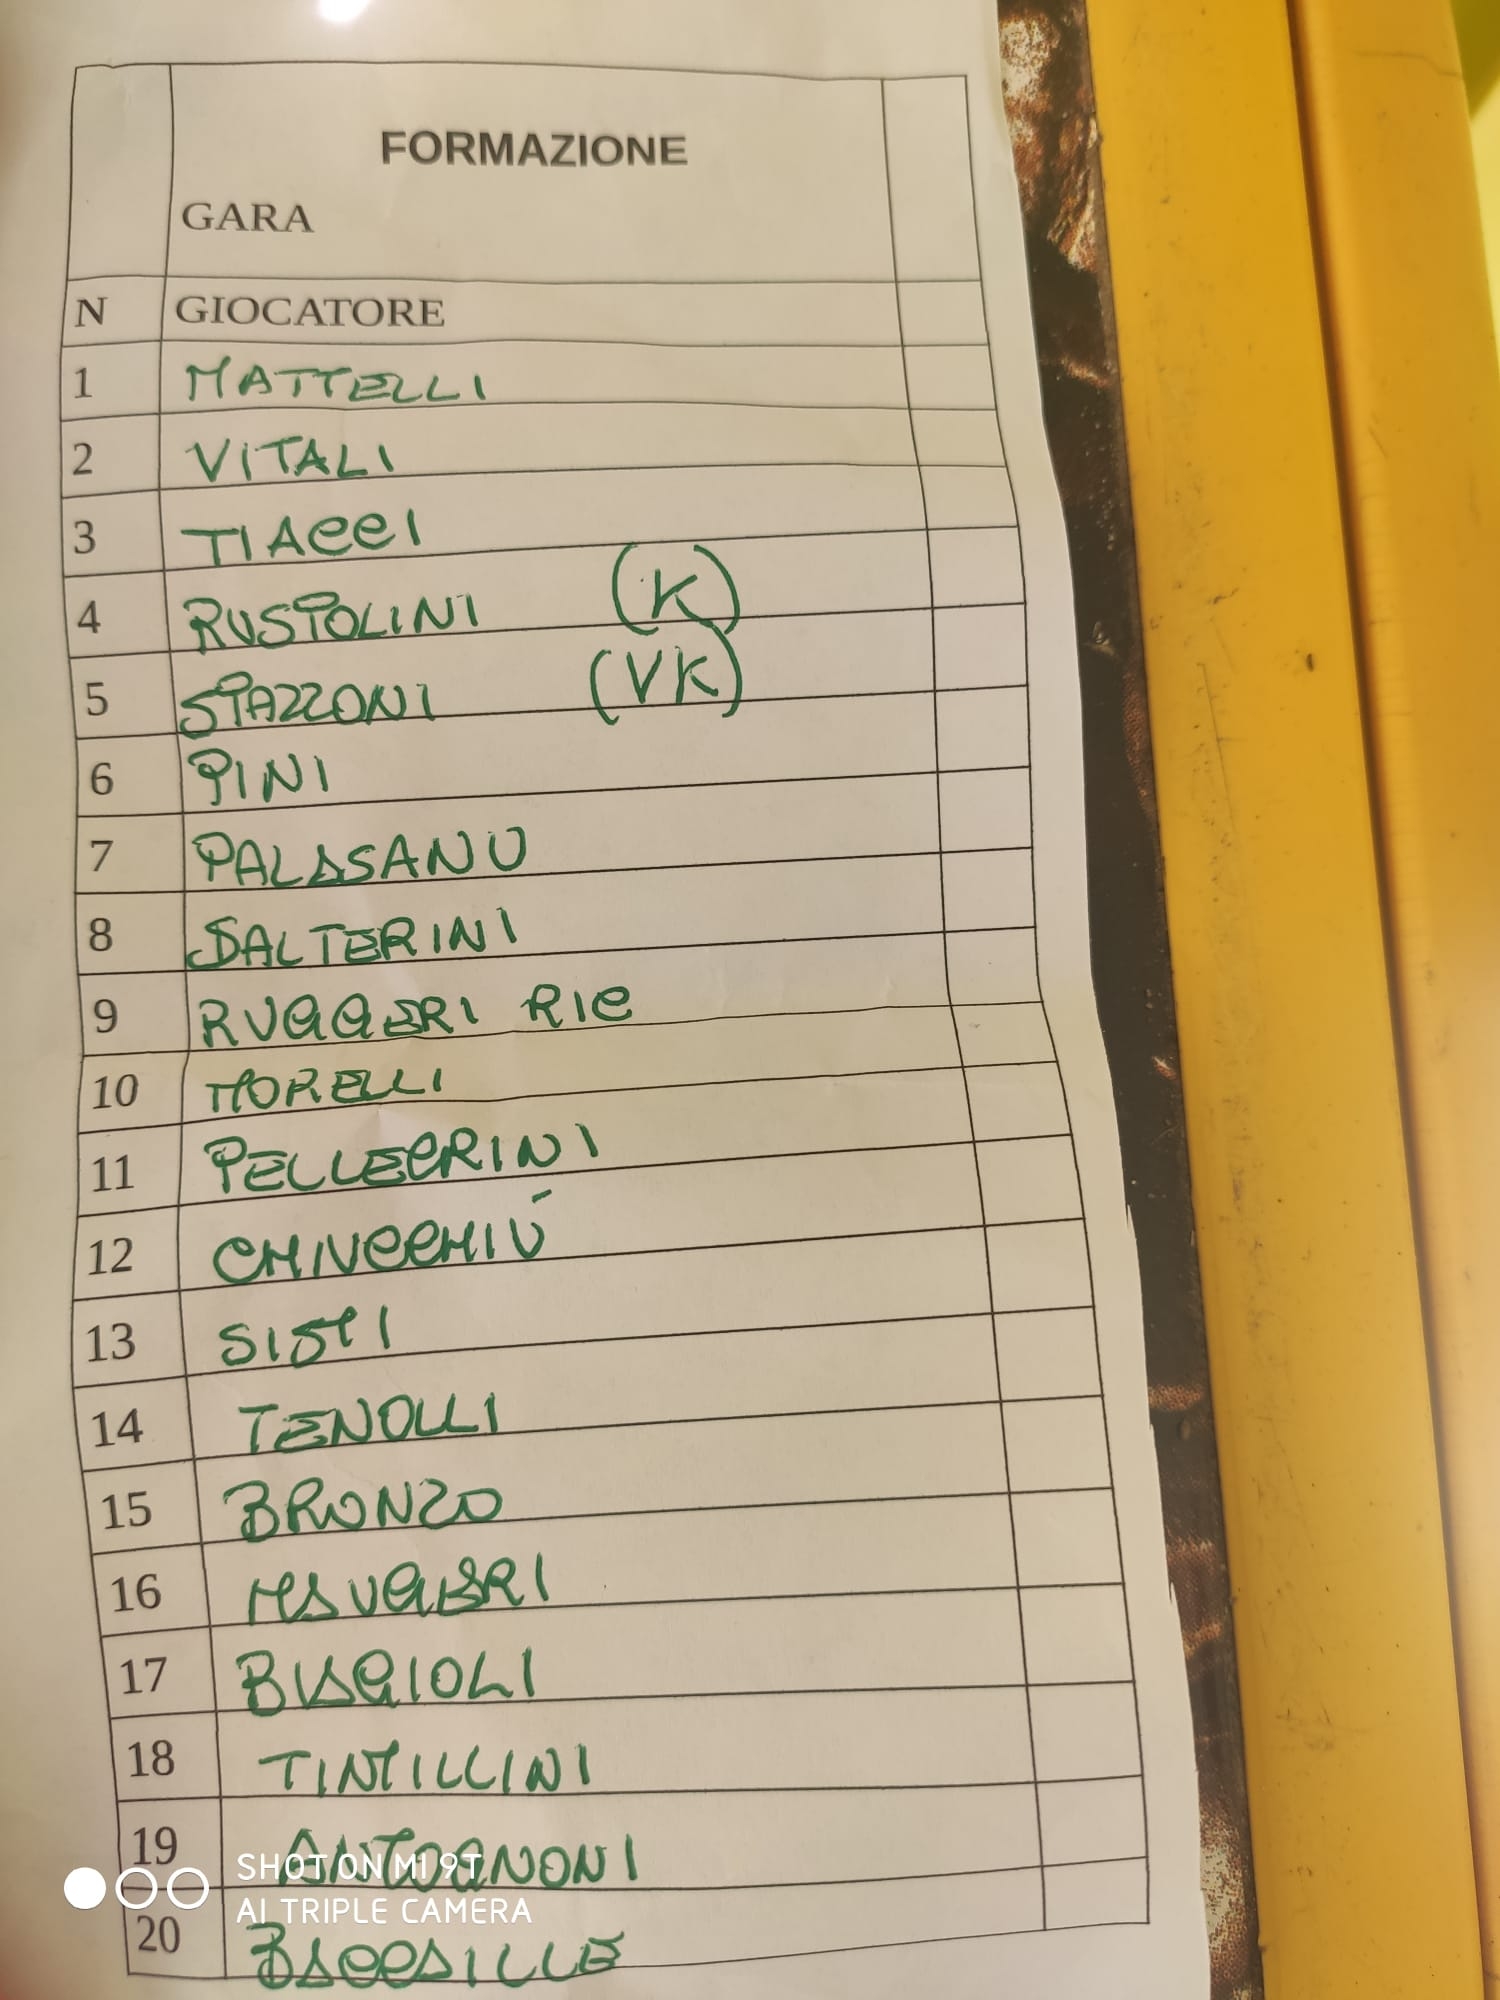 FORMAZIONE
GARA
N GIOCATORE
1 MATTELLI
2 VITALI
3 TIACCI
4 RUSTOLINI (K)
5 STAZZONI (VK)
6 PINI
7 PALASANU
8 SALTERINI
9 RUGGERI RIC
10 MORELLI
11 PELLEGRINI
12 CHIUCCHIÚ
13 SISTI
14 TENOLLI
15 BRONZO
16
17 BIAGIOLI
18 TINTILLINI
19 ANTOGNONI
20
SHOT ON MI 9T
AI TRIPLE CAMERA